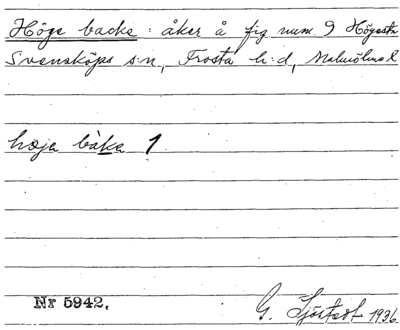 Höge backe: åker å fig num 9 Högesta
Svensköps s:n, Frosta h:d, Malmöhus l
hœja bàka 1
Nr 5942.
G. Sjöstedt 1936.